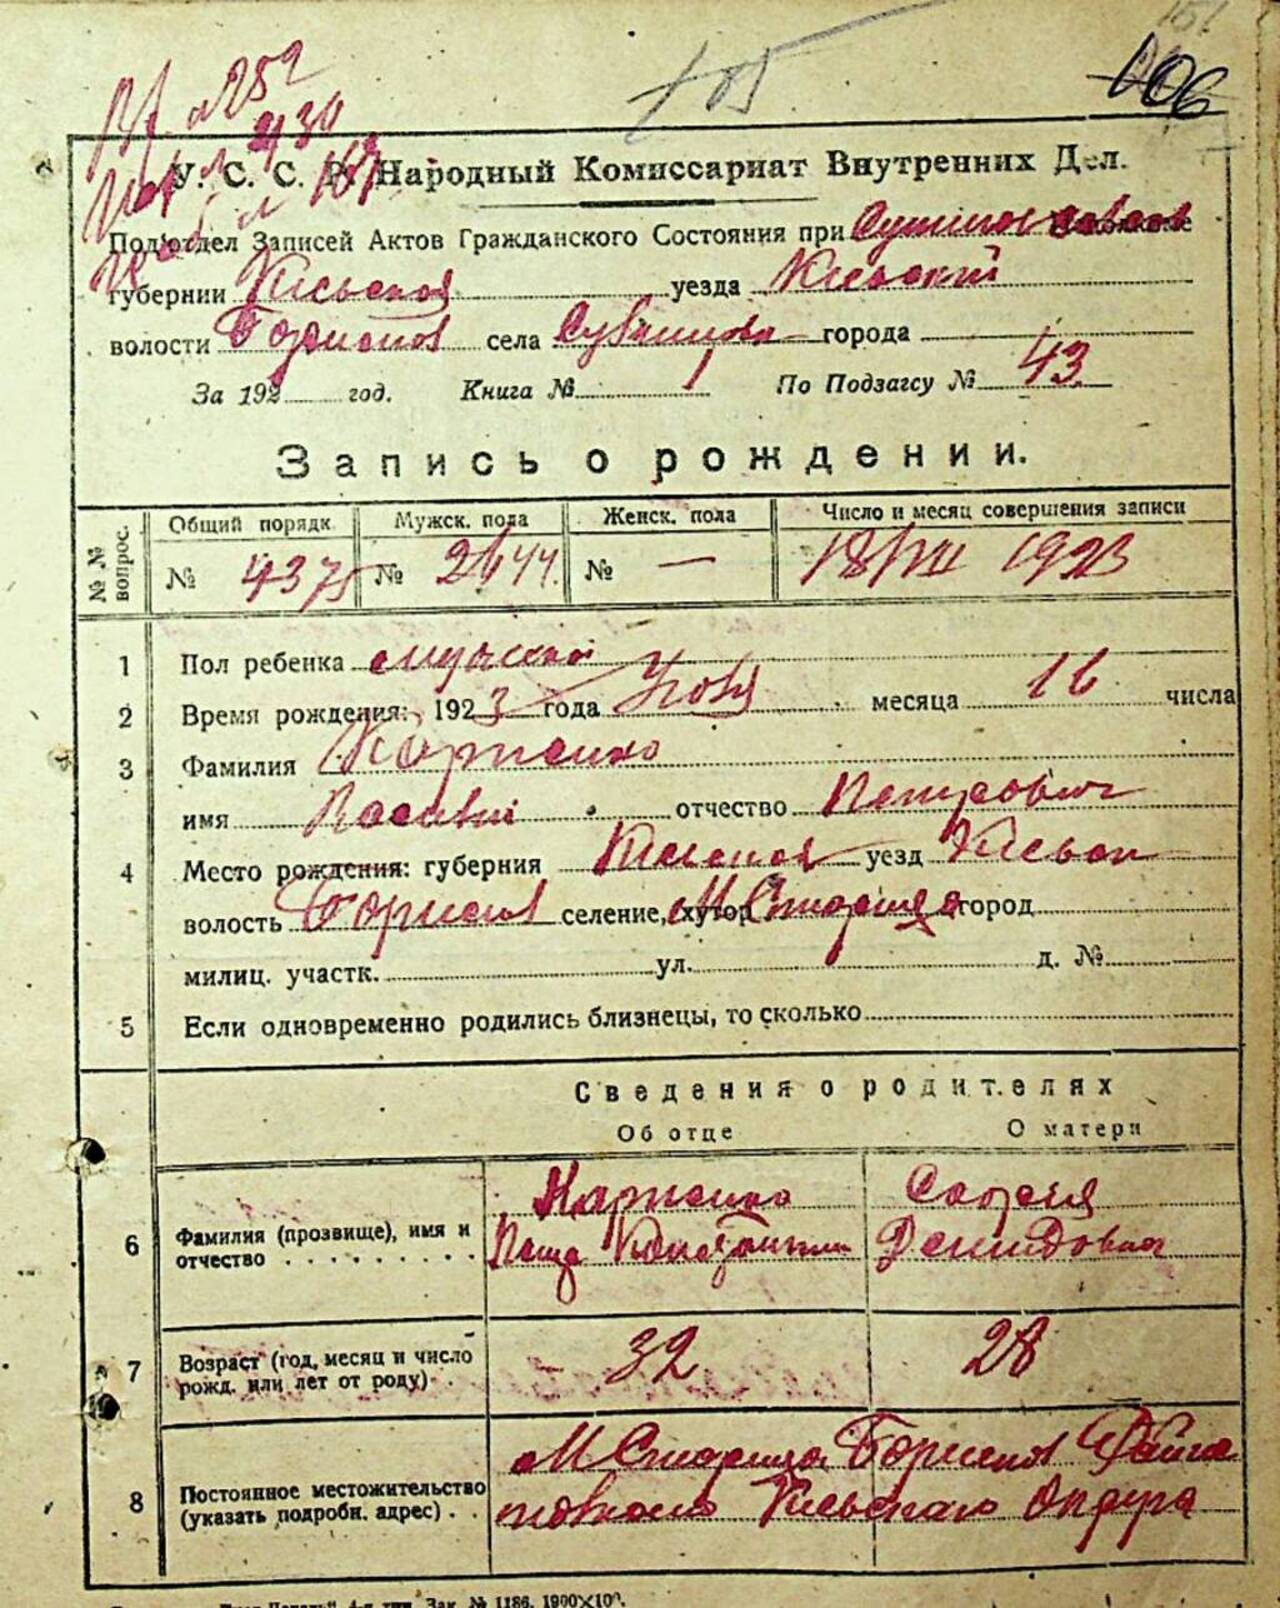 105
106
№ 252
У. С. С. Р. Народный Комиссариат Внутренних Дел.
Подотдел Записей Актов Гражданского Состояния при
губернии Киевской уезда Киевский
волости Борисп села города
За 192 год. Книга № 1 По Подзагсу № 43
Запись о рождении.
№№ вопрос.
Общий порядк Мужск. пола Женск. пола Число и месяц совершения записи
№ 4375 № 2644 № — 18/VII 1923
1 Пол ребенка мужской
2 Время рождения: 1923 года Июля месяца 16 числа
3 Фамилия Корженко
имя Василий отчество Петрович
4 Место рождения: губерния Киевская уезд Киевск
волость Борисп селение, хутор М Старица город
милиц. участк. ул. д. №
5 Если одновременно родились близнецы, то сколько
Сведения о родителях
Об отце О матери
6 Фамилия (прозвище), имя и отчество
Корженко
Софья
Демидовна
7 Возраст (год, месяц и число рожд. или лет от роду)
32 28
8 Постоянное местожительство (указать подробн. адрес)
М Старица Борисп
Киевского Округа
4-я тип. Зак. № 1186. 1900×100.